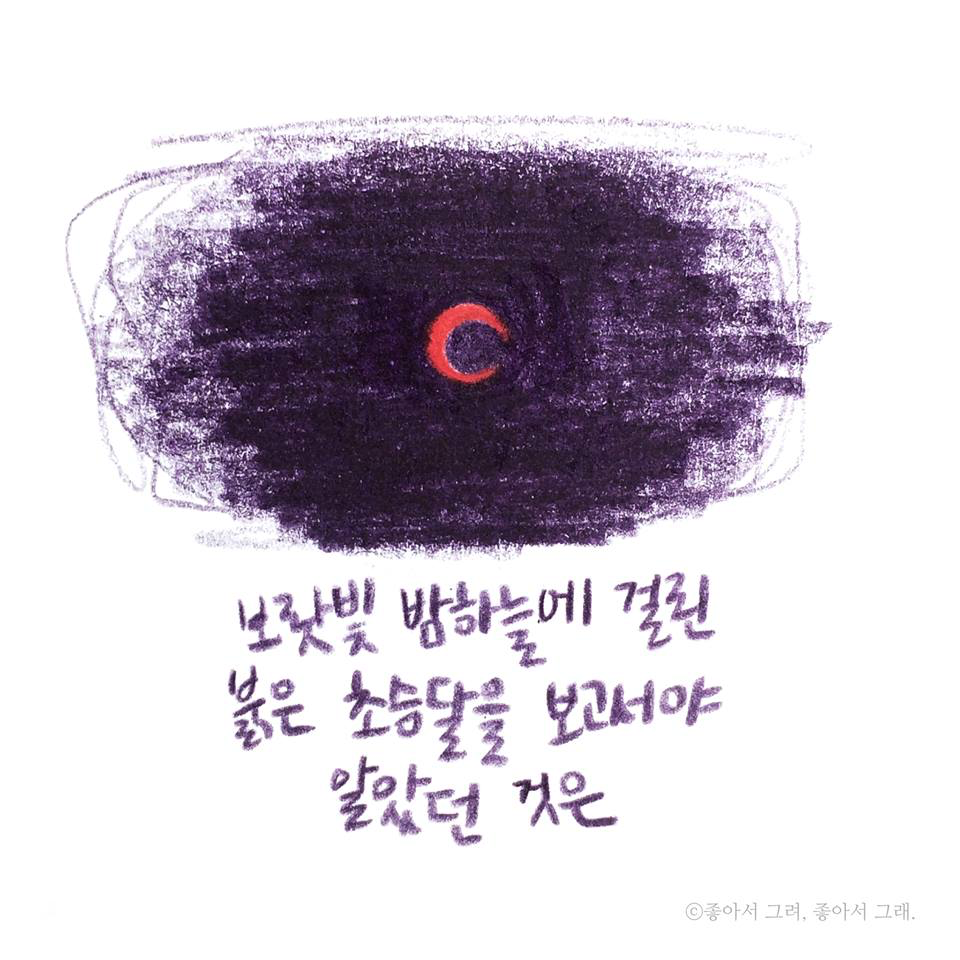 보랏빛 밤하늘에 걸린
붉은 초승달을 보고서야
알았던 것은
©좋아서 그려, 좋아서 그래.